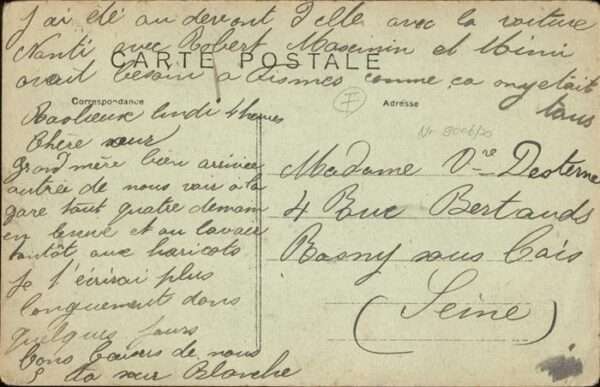 j'ai été au devant d'elle avec la voiture
Nanti avec Robert Maximin et Mimi
CARTE POSTALE
avait besoin a Fismes comme ça on y était
tous
Correspondance
Adresse
lundi 4 heures
Chère sœur
grand mère bien arrivée
de nous voir a la
gare tout quatre demain
en et au lavoir
tantôt aux haricots
je t'écrirai plus
longuement dans
quelques jours
bons baisers de nous
5 ta sœur Blanche
Madame Vve Desterne
4 Rue Bertauds
Rosny sous Bois
(Seine)